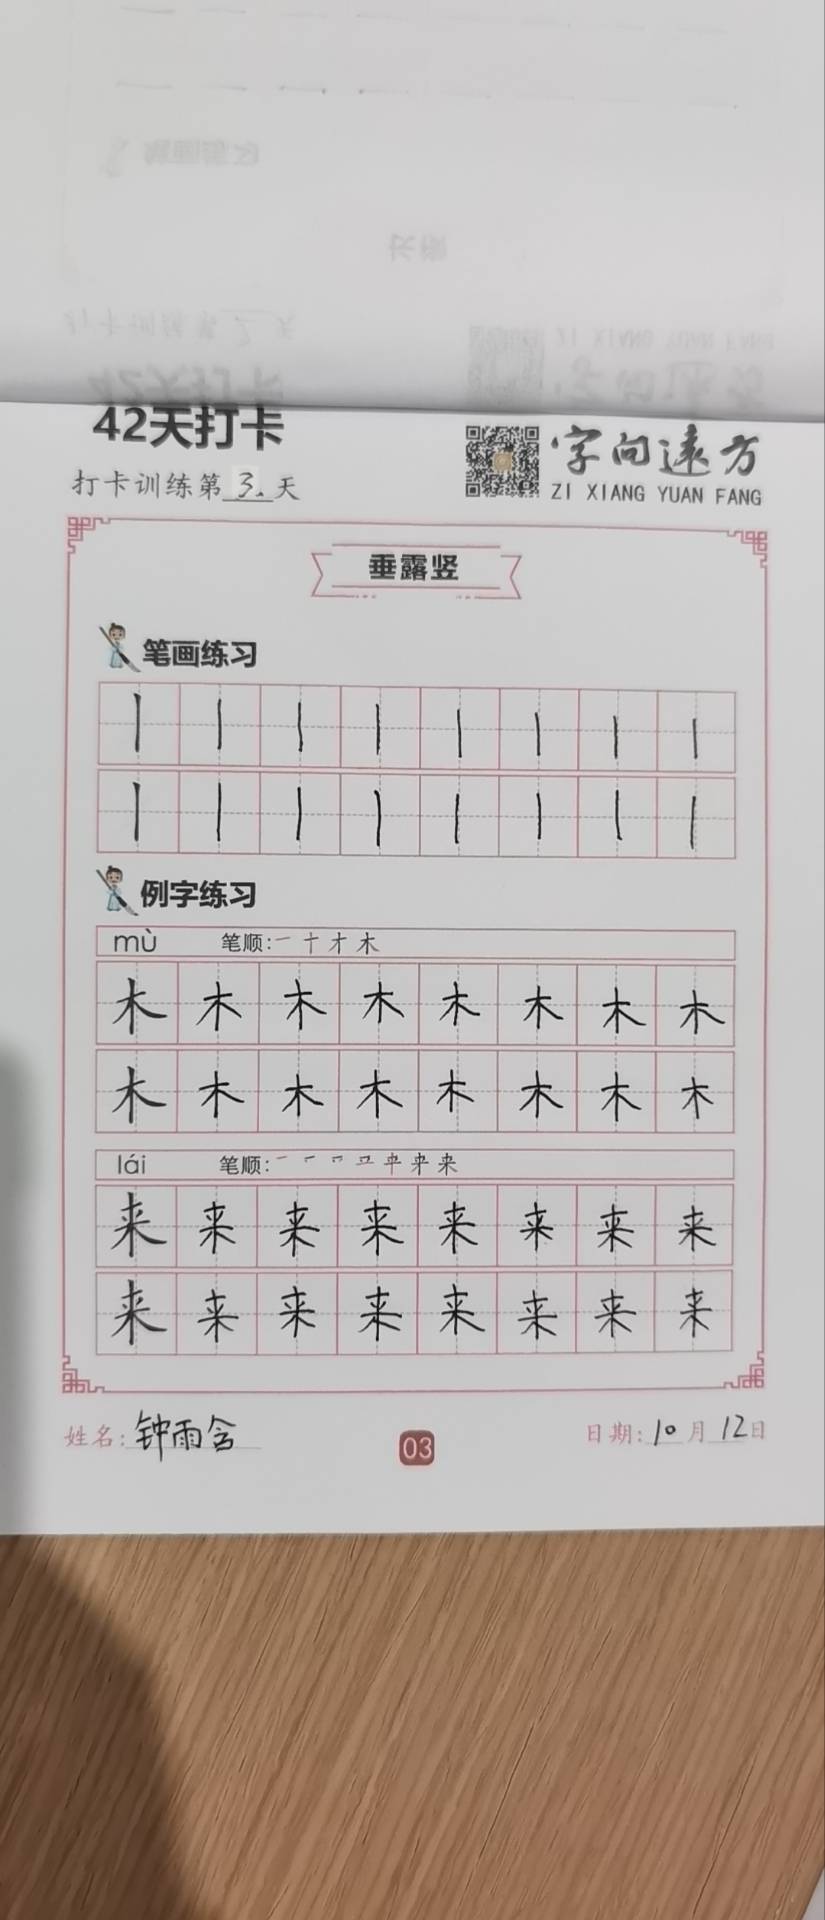 42天打卡
字向远方
打卡训练第3.天
ZI XIANG YUAN FANG
垂露竖
笔画练习
丨丨丨丨丨丨丨丨
丨丨丨丨丨丨丨丨
例字练习
mù 笔顺:一十才木
木木木木木木木木
木木木木木木木木
lái 笔顺:
来来来来来来来来
来来来来来来来来
姓名:钟雨含
03
日期:10月12日